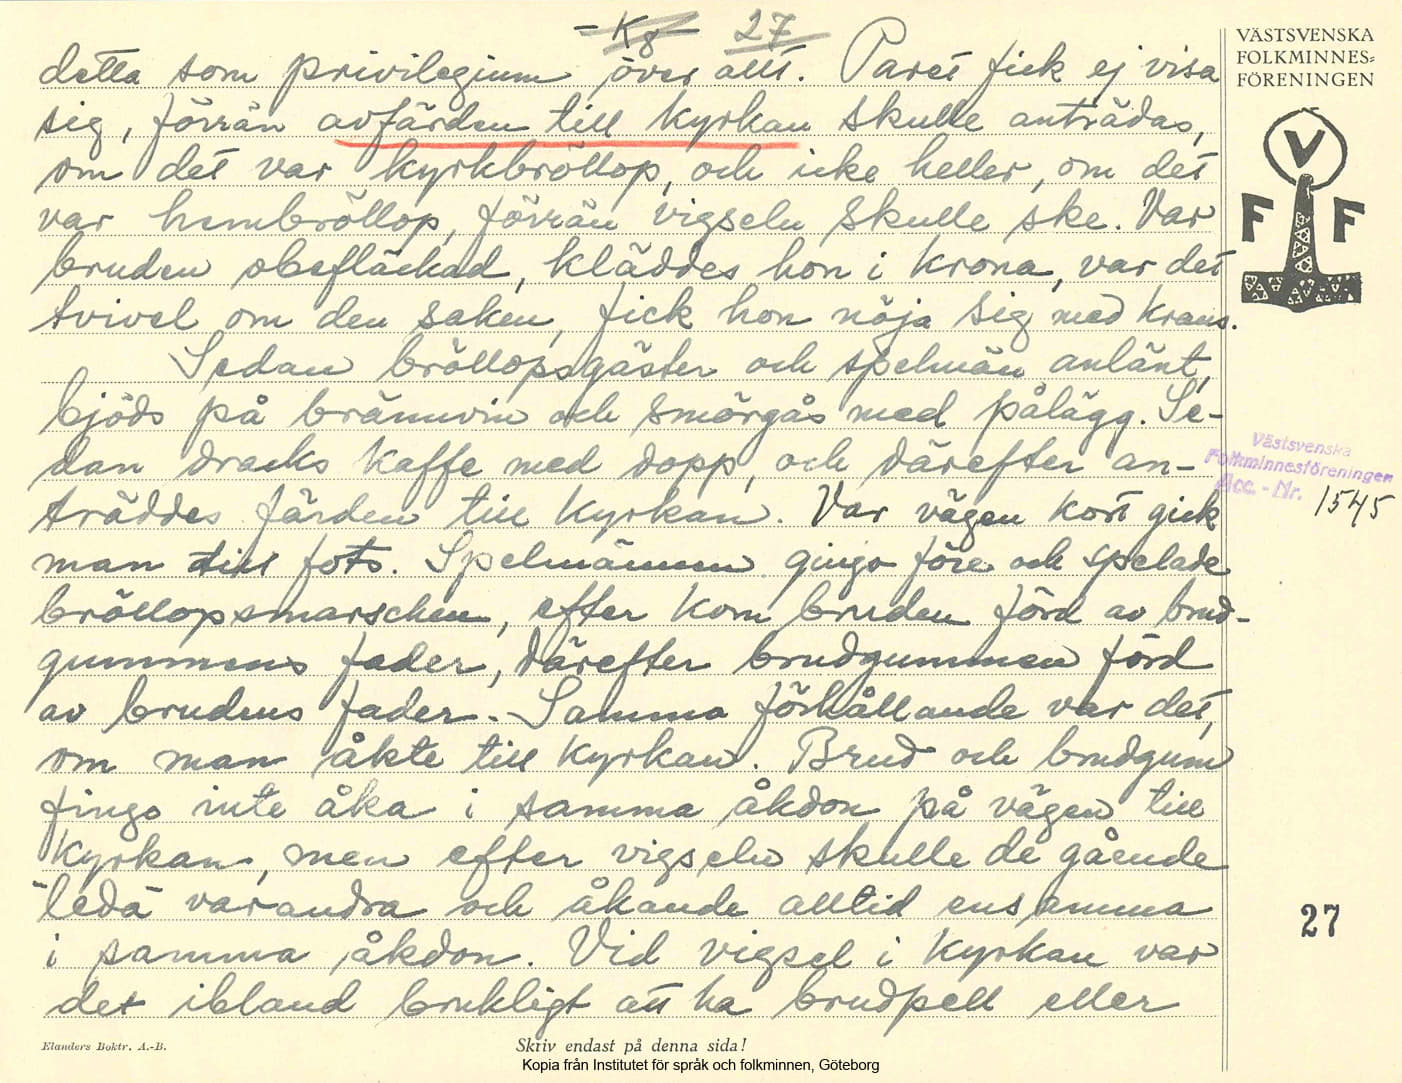 K8 27
detta som privilegium över allt. Paret fick ej visa
sig, förrän avfärden till kyrkan skulle anträdas,
om det var kyrkbröllop, och icke heller, om det
var hembröllop, förrän vigseln skulle ske. Var
bruden obefläckad, kläddes hon i krona, var det
tvivel om den saken, fick hon nöja sig med krans.
Sedan bröllopsgäster och spelmän anlänt,
bjöds på brännvin och smörgås med pålägg. Se-
dan dracks kaffe med dopp, och därefter an-
träddes färden till kyrkan. Var vägen kort gick
man till fots. Spelmännen gingo före och spelade
bröllopsmarschen, efter kom bruden förd av brud-
gummens fader, därefter brudgummen förd
av brudens fader. Samma förhållande var det,
om man åkte till kyrkan. Brud och brudgum
fingo inte åka i samma åkdon på vägen till
kyrkan, men efter vigseln skulle de gående
"leda" varandra och åkande alltid ensamma
i samma åkdon. Vid vigsel i kyrkan var
det ibland brukligt att ha brudpell eller
VÄSTSVENSKA
FOLKMINNES=
FÖRENINGEN
V
F F
Västsvenska
Folkminnesföreningen
Acc.-Nr. 1545
27
Elanders Boktr. A.-B.
Skriv endast på denna sida!
Kopia från Institutet för språk och folkminnen, Göteborg